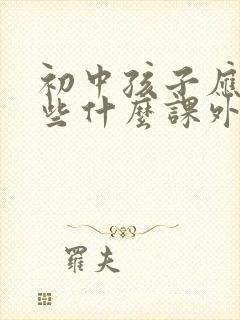 初中孩子應
些什麼課外
羅夫